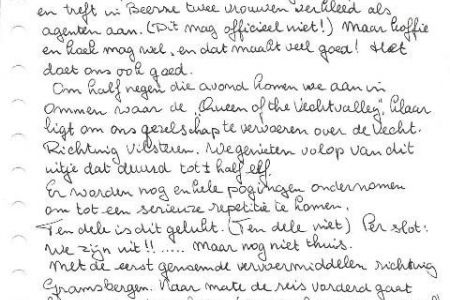 en treft in Beerse twee vrouwen verkleed als
agenten aan. (Dit mag officieel niet!) Maar koffie
en koek mag wel, en dat maakt veel goed! Het
doet ons ook goed.
Om half negen die avond komen we aan in
Ommen waar de "Queen of the Vechtvalley", klaar
ligt om ons gezelschap te vervoeren over de Vecht.
Richting Vilsteren. We genieten volop van dit
uitje dat duurd tot ± half elf.
Er worden nog enkele pogingen ondernomen
om tot een serieuze repetitie te komen.
Ten dele is dit gelukt. (Ten dele niet) Per slot:
We zijn uit!! ..... Maar nog niet thuis.
Met de eerst genoemde vervoermiddelen richting
Gramsbergen. Naar mate de reis vorderd gaat